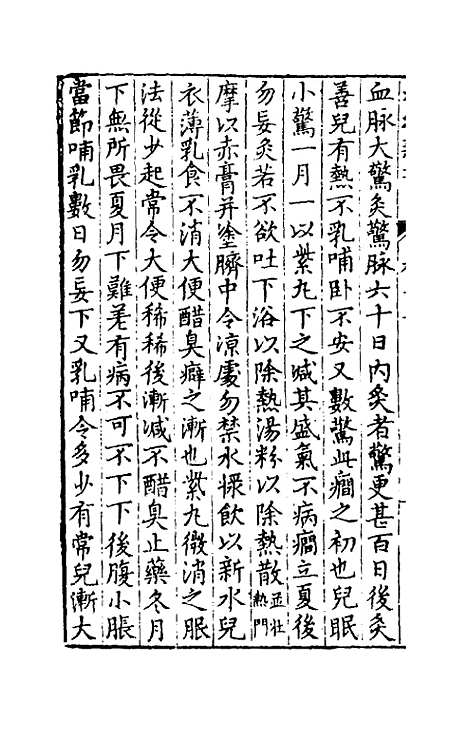 血脉大驚灸驚脉六十日内灸者驚更甚百日後灸
善兒有熱不乳哺卧不安又數驚此癇之初也兒眠
小驚一月一以紫丸下之减其盛氣不病癇立夏後
勿妄灸若不欲吐下浴以除熱湯粉以除熱散並壯熱門
摩以赤膏并塗臍中令涼處勿禁水慢飲以新水兒
衣薄乳食不消大便醋臭癖之漸也紫丸微消之服
法從少起常令大便稀稀後漸减不醋臭止藥冬月
下無所畏夏月下難差有病不可不下下後腹小脹
當節哺乳數日勿妄下又乳哺令多少有常兒漸大